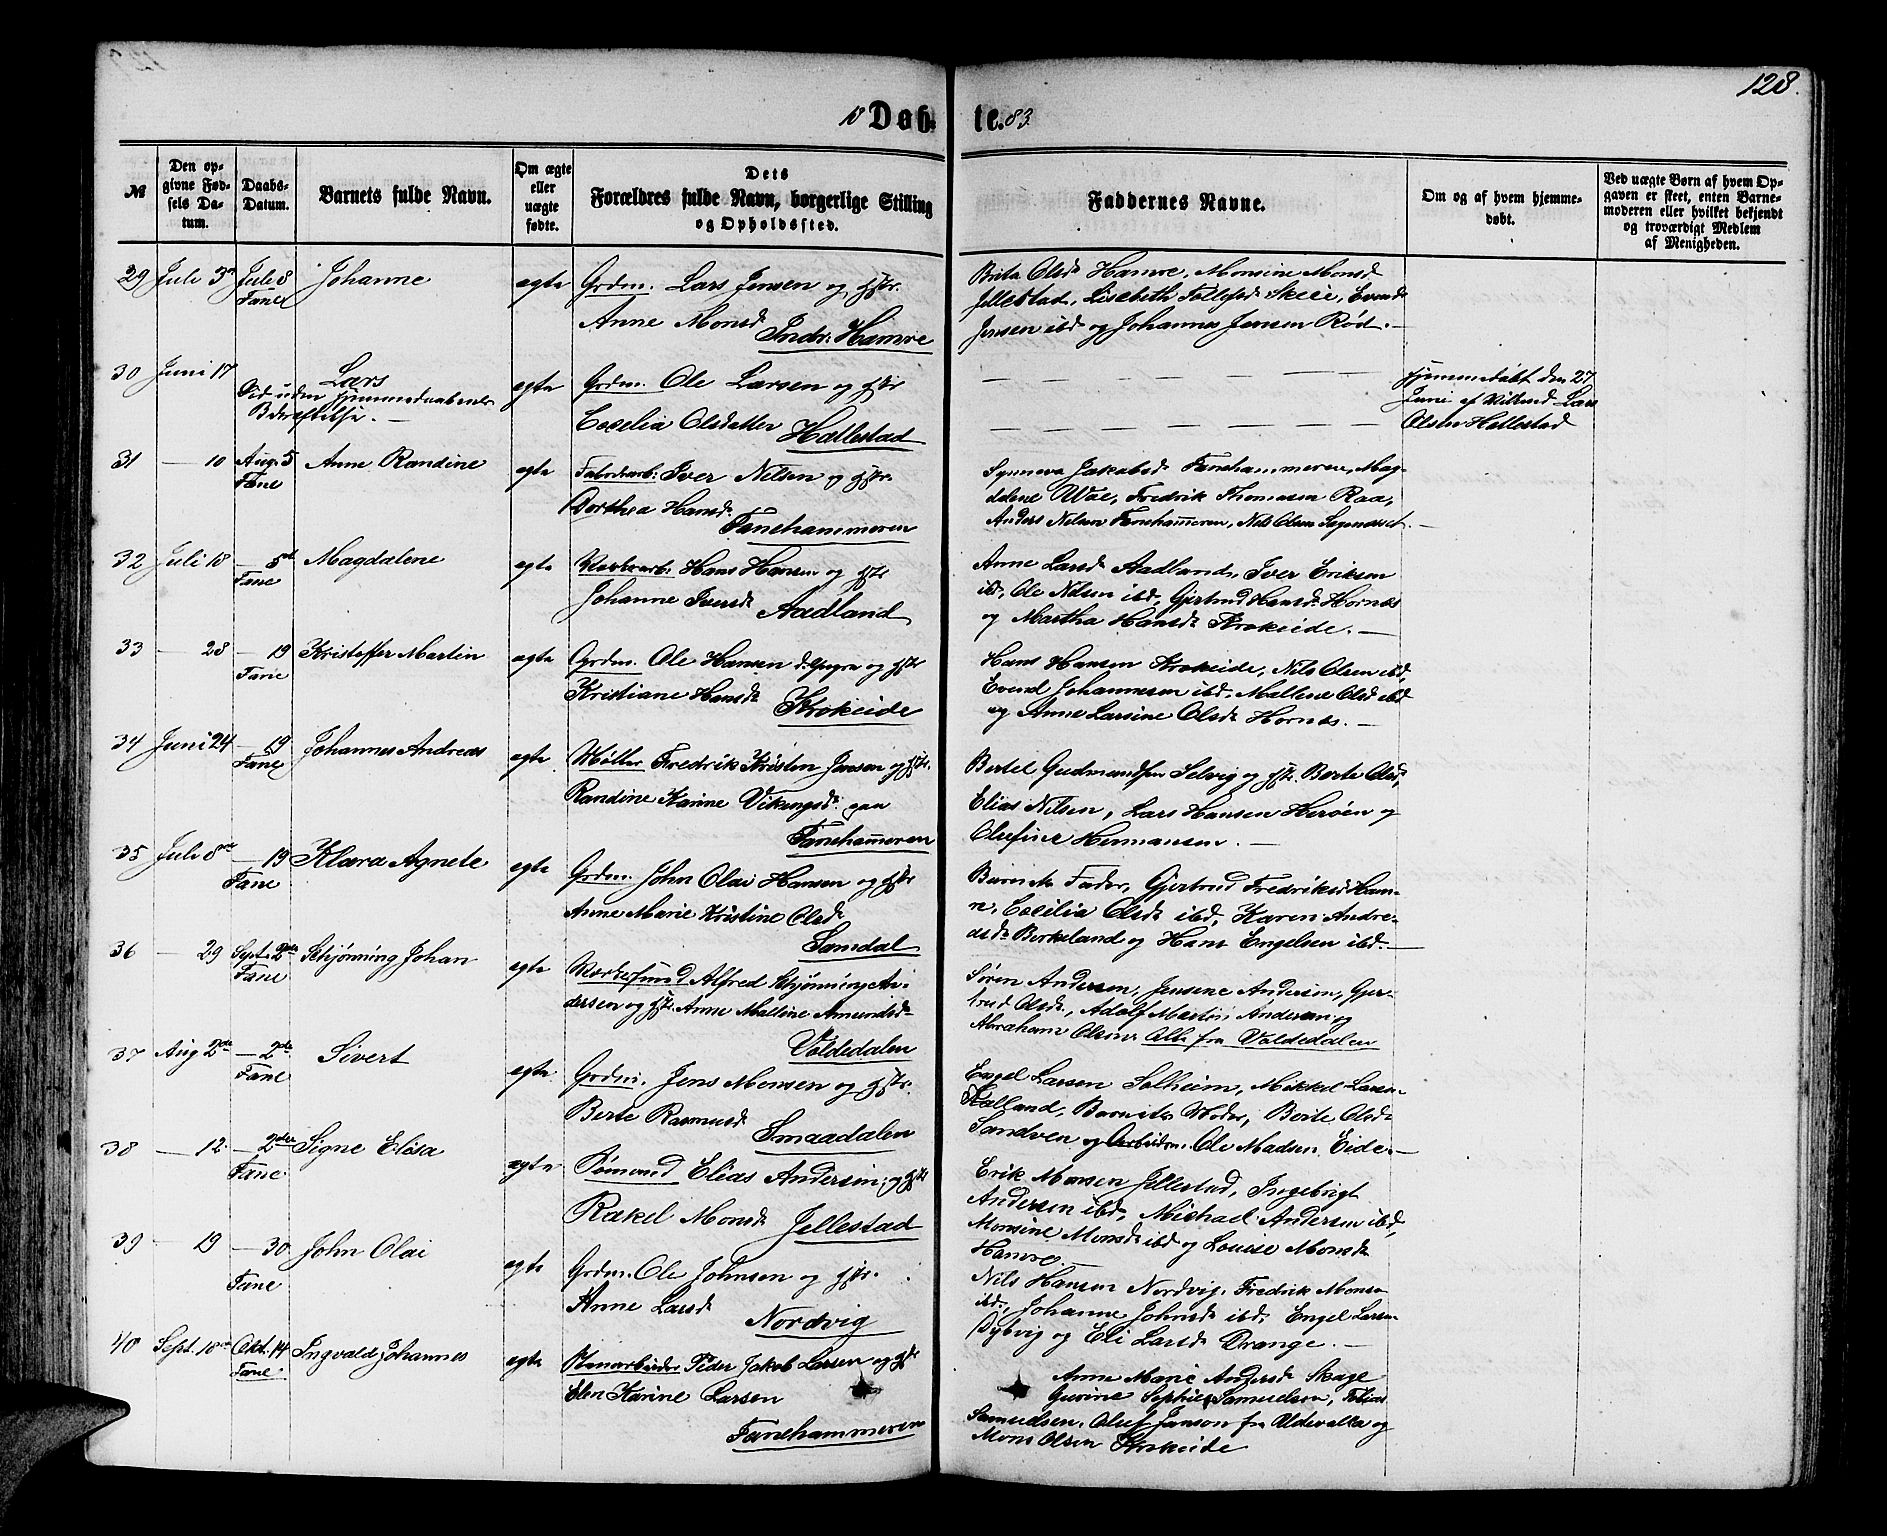 128.
18 Døb- te. 83.
№
Den op-
givne Fød-
sels Da-
tum.
Daabs-
Datum.
Barnets fulde Navn.
Om ægte
eller
uægte
fødte.
Dets
Forældres fulde Navn, borgerlige Stilling
og Opholdssted.
Faddernes Navne.
Om og af hvem hjemme-
døbt.
Ved uægte Børn af hvem Op-
gaven er skeet, enten Barne-
moderen eller hvilket bekjendt
og troværdigt Medlem
af Menigheden.
29 Juli 3 Juli 8 Johanne ægte Grdm. Lars Jensen og Hstr.
Fane
Anne Monsd. Indr. Hamre
Brita Olsd. Hamre, Monsine Monsd.
Jellestad, Lisebeth Tollefsd. Skeie,
Jensen ibd og Johannes Jensen Rød. —
30 Juni 17 Lars ægte Grdm. Ole Larsen og Hstr
Død uden Hjemmedaabens
Bekræftelse. —
Cecelia Olsdatter Hallestad
Hjemmedøbt den 27
Juni af Lars
Olsen Hallestad
31 — 10 Aug. 5 Anne Randine ægte Fabrikarb. Iver Nilsen og Hstr.
Fane
Dorthea Hansd. Fanehammeren
Synneva Jakobsd. Fanehammeren, Mag-
dalene Wae, Fredrik Thomassen Raa,
Anders Nilsen Fanehammeren, Nils Olsen
32 Juli 18 — 5te Magdalene ægte Hans Hansen og Hstr
Fane
Johanne Iversd. Aadland
Anne Larsd. Aadland, Iver Eriksen
ibd, Ole Nilsen ibd, Gjertrud Hansd. Hornæs
og Martha Hansd. Krokeide. —
33 — 28 — 19 Kristoffer Martin ægte Grdm. Ole Hansen d. yngre og Hstr
Fane
Kristiane Hansd. Krokeide
Hans Hansen Krokeide, Nils Olsen ibd,
Evend Johannesen ibd, Mallene Olsd ibd
og Anne Larsine Olsd. Hornæs. —
34 Juni 24 — 19 Johannes Andreas ægte Møller Fredrik Kristen Jansen og Hstr.
Fane
Randine Karine Vikingsd. paa
Fanehammeren
Bertel Gudmundsen Selvig og Hstr. Berte Olsd,
Elias Nilsen, Lars Hansen Herøen og
Olufine Hermansen. —
35 Juli 8de — 19 Klara Agnete ægte Grdm. John Olai Hansen og Hstr
Fane
Anne Marie Kristine Olsd.
Samdal
Barnets Fader, Gjertrud Fredriksd. Ham-
n, Cecilia Olsd. ibd, Karen Andre-
asd. Birkeland og Hans Engelsen ibd. —
36 — 29 Sept. 2den Schjønning Johan ægte Alfred Schjønning An-
Fane
dersen og Hstr. Anne Malline Amundsd.
Voldedalen
Søren Andersen, Jensine Andersen, Gjer-
trud Olsd., Adolf Martin Andersen og
Abraham Olsen, Alle fra Voldedalen
37 Aug 2den — 2den Sivert ægte Grdm. Jens Monsen og Hstr.
Fane
Berte Rasmusd. Smaadalen
Engel Larsen Solheim, Mikkel Larsen
Kalland, Barnets Moder, Berte Olsd.
Sandven og Arbeidsm. Ole Madsen Eide. —
38 — 12. — 2den Signe Elisa ægte Sømand Elias Andersen og Hstr
Fane
Rakel Monsd. Jellestad
Erik Monsen Jellestad, Ingebrigt
Andersen ibd, Michael Andersen ibd,
Monsine Monsd. ibd og Louise Monsd.
Hamre. —
39 — 19 — 30 John Olai ægte Grdm. Ole Johnsen og Hstr.
Fane
Anne Larsd. Nordvig
Nils Hansen Nordvig, Fredrik Monsen
ibd., Johanne Johnsd. ibd, Engel Larsen
Dybvig og Eli Larsd. Drange. —
40 Sept. 10de Okt. 14 Ingvald Johannes ægte Stenarbeider Peder Jakob Larsen og Hstr
Fane
Elen Karine Larsen
Fanehammeren
Anne Marie Andersd. Skage
Gurine Sophie Samuelsen, Tobias
Samuelsen, Oluf Janson fra og
Mons Olsen Krokeide